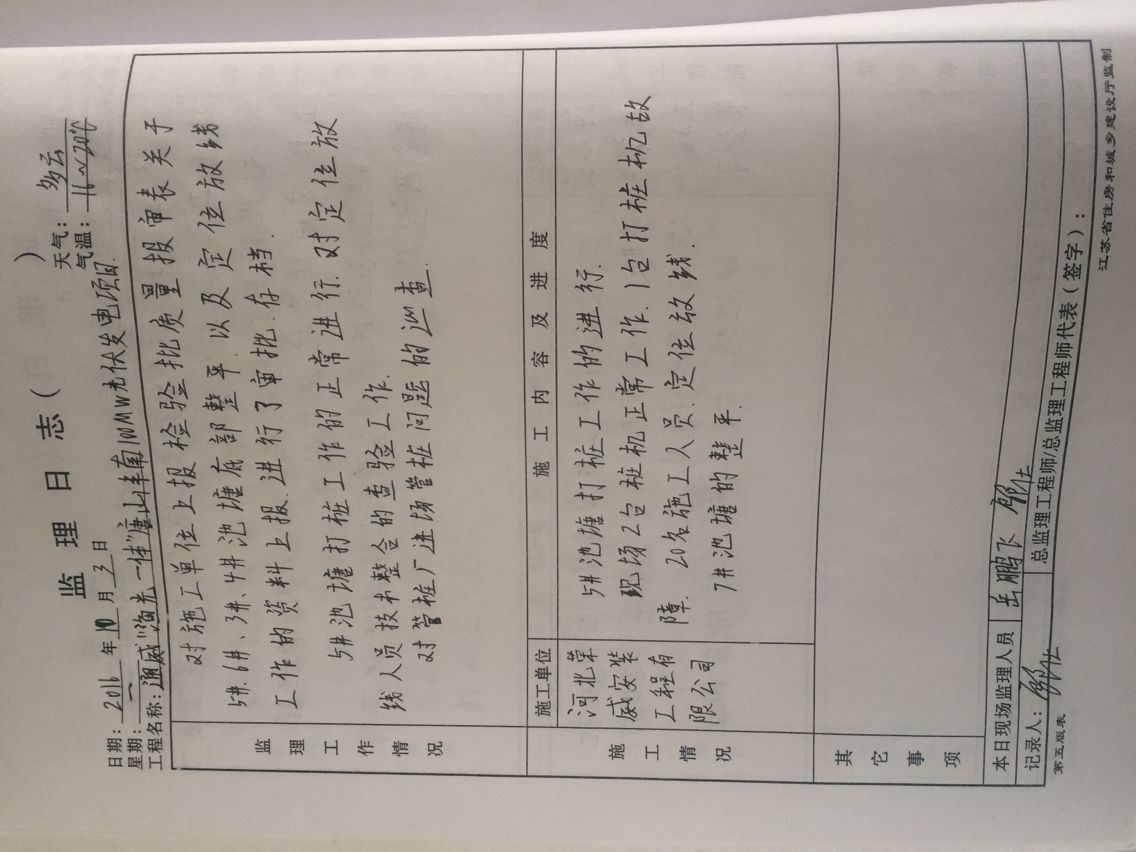 监理日志（　　）
日期：2016年10月3日
天气：多云
星期：一
气温：16~20℃
工程名称：通威"渔光一体"唐山丰南100MW光伏发电项目.
监理工作情况
对施工单位上报检验批质量报审表关于
5#.6#、3#、4#池塘底部整平.以及定位放线
工作的资料上报.进行了审批.存档.
5#池塘打桩工作的正常进行.对定位放
线人员技术整合的查验工作.
对管桩厂进场管桩问题的巡查.
施工情况
施工单位
施工内容及进度
河北荣
威安装
工程有
限公司
5#池塘打桩工作的进行.
现场2台桩机正常工作.1台打桩机故
障.20名施工人员.定位放线.
7#池塘的整平.
其它事项
本日现场监理人员 岳鹏飞
记录人：
总监理工程师/总监理工程师代表（签字）：
第五版表
江苏省住房和城乡建设厅监制